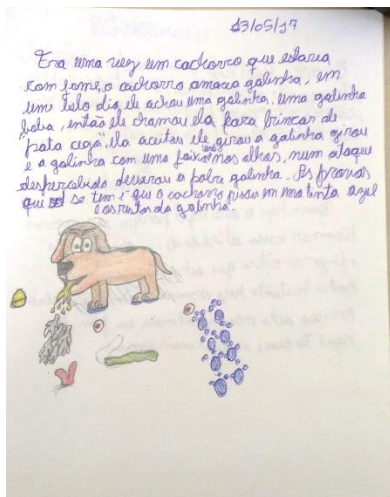 13/05/17
Era uma vez um cachorro que estava
com fome, o cachorro amava galinha, em
um belo dia ele achou uma galinha, uma galinha
boba, então ele chamou ela para brincar de
"pata cega", ela aceitou ele girou a galinha girou
e a galinha com uma faixa nos olhos, num ataque
despercebido devorou a pobre galinha. As provas
que se tem é que o cachorro pisou em uma tinta azul
e os restos da galinha.